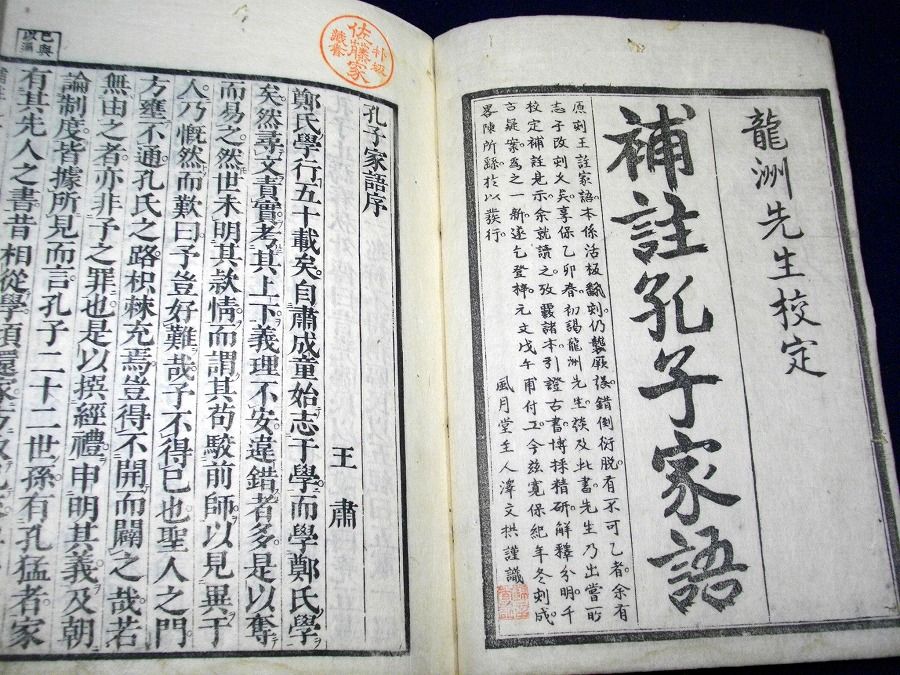 龍洲先生校定
補註孔子家語
原刻王註家語本係活板飜刻仍襲厥誤錯倒衍脱有不可乙者余有
志于改刻久矣享保乙卯春初謁龍洲先生談及此書先生乃出嘗所
校定補註見示余就讀之攷覈諸本引證古書博採精研解釋分明千
古疑案為之一新遂乞登梓元文戊午甫付工今茲寛保紀年冬刻成
畧陳所繇於以發行
風月堂主人澤文拱謹識
佐藤家
藏書
孔子家語序
王肅
鄭氏學行五十載矣自肅成童始志于學而學鄭氏學
矣然尋文責實考其上下義理不安違錯者多是以奪
而易之然世未明其款情而謂其苟駮前師以見異于
人乃慨然而歎曰予豈好難哉予不得已也聖人之門
方壅不通孔氏之路枳棘充焉豈得不開而闢之哉若
無由之者亦非予之罪也是以撰經禮申明其義及朝
論制度皆據所見而言孔子二十二世孫有孔猛者家
有其先人之書昔相從學頃還家方取